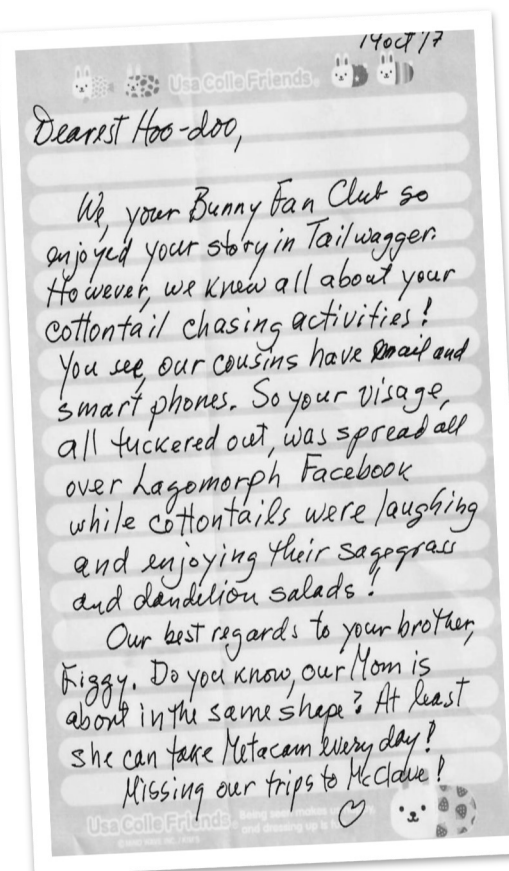 14 Oct 17
Usa Colle Friends
Dearest Hoo-doo,
We, your Bunny Fan Club so
enjoyed your story in Tailwagger.
However, we knew all about your
cottontail chasing activities!
You see, our cousins have email and
smart phones. So your visage,
all tuckered out, was spread all
over Lagomorph Facebook
while cottontails were laughing
and enjoying their sagegrass
and dandelion salads!
Our best regards to your brother,
Figgy. Do you know, our Mom is
about in the same shape? At least
she can take Metacam every day!
Missing our trips to McClave!
Usa Colle Friends
Being seen makes us
and dressing up is